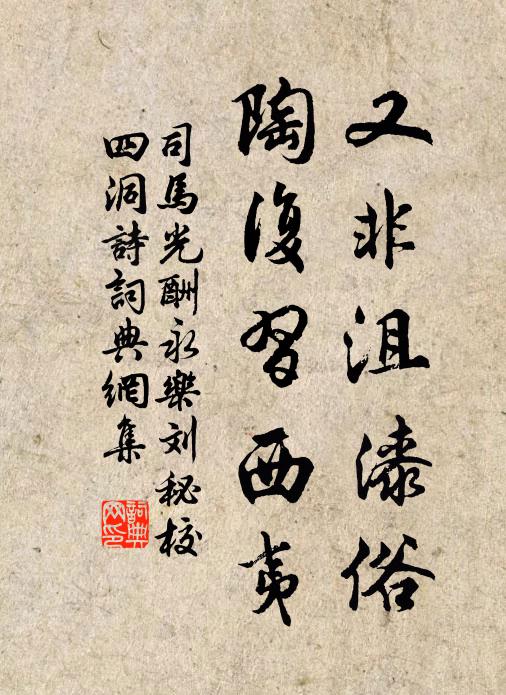 又非沮漆俗
陶復習西夷
司馬光酬永樂刘秘校
四洞詩詞典網集
詞典網印